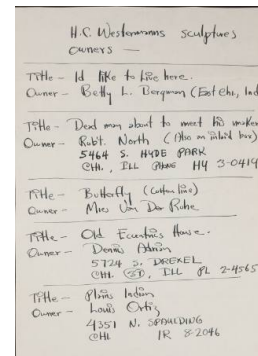 H.C. Westermanns sculptures
owners —
Title – Id like to live here.
Owner – Betty L. Bergman (East Chi., Ind
Title – Dead man about to meet his maker
Owner – Robt. North (Also an inlaid box)
5464 S. HYDE PARK
CHI., ILL PHONE HY 3-0419
Title – Butterfly
Owner – Mies Van Der Rohe
Title – Old Eccentrics House.
Owner – Dennis Adrian
5724 S. DREXEL
CHI. ILL PL 2-4565
Title – Plains Indian
Owner – Louis Ortiz
4351 N. SPAULDING
CHI. IR 8-2046